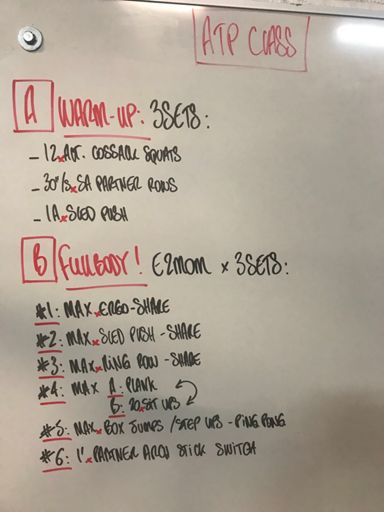 ATP CLASS
A WARM-UP: 3 SETS:
- 12 x ALT. COSSACK SQUATS
- 30"/s x SA PARTNER ROWS
- 1A x SLED PUSH
B FULLBODY! E2MOM x 3 SETS:
#1: MAX x ERGO-SHARE
#2: MAX x SLED PUSH - SHARE
#3: MAX x RING ROW - SHARE
#4: MAX A: PLANK
B: 20 x SIT UPS
#5: MAX x BOX JUMPS / STEP UPS - PING PONG
#6: 1' x PARTNER STICK SWITCH